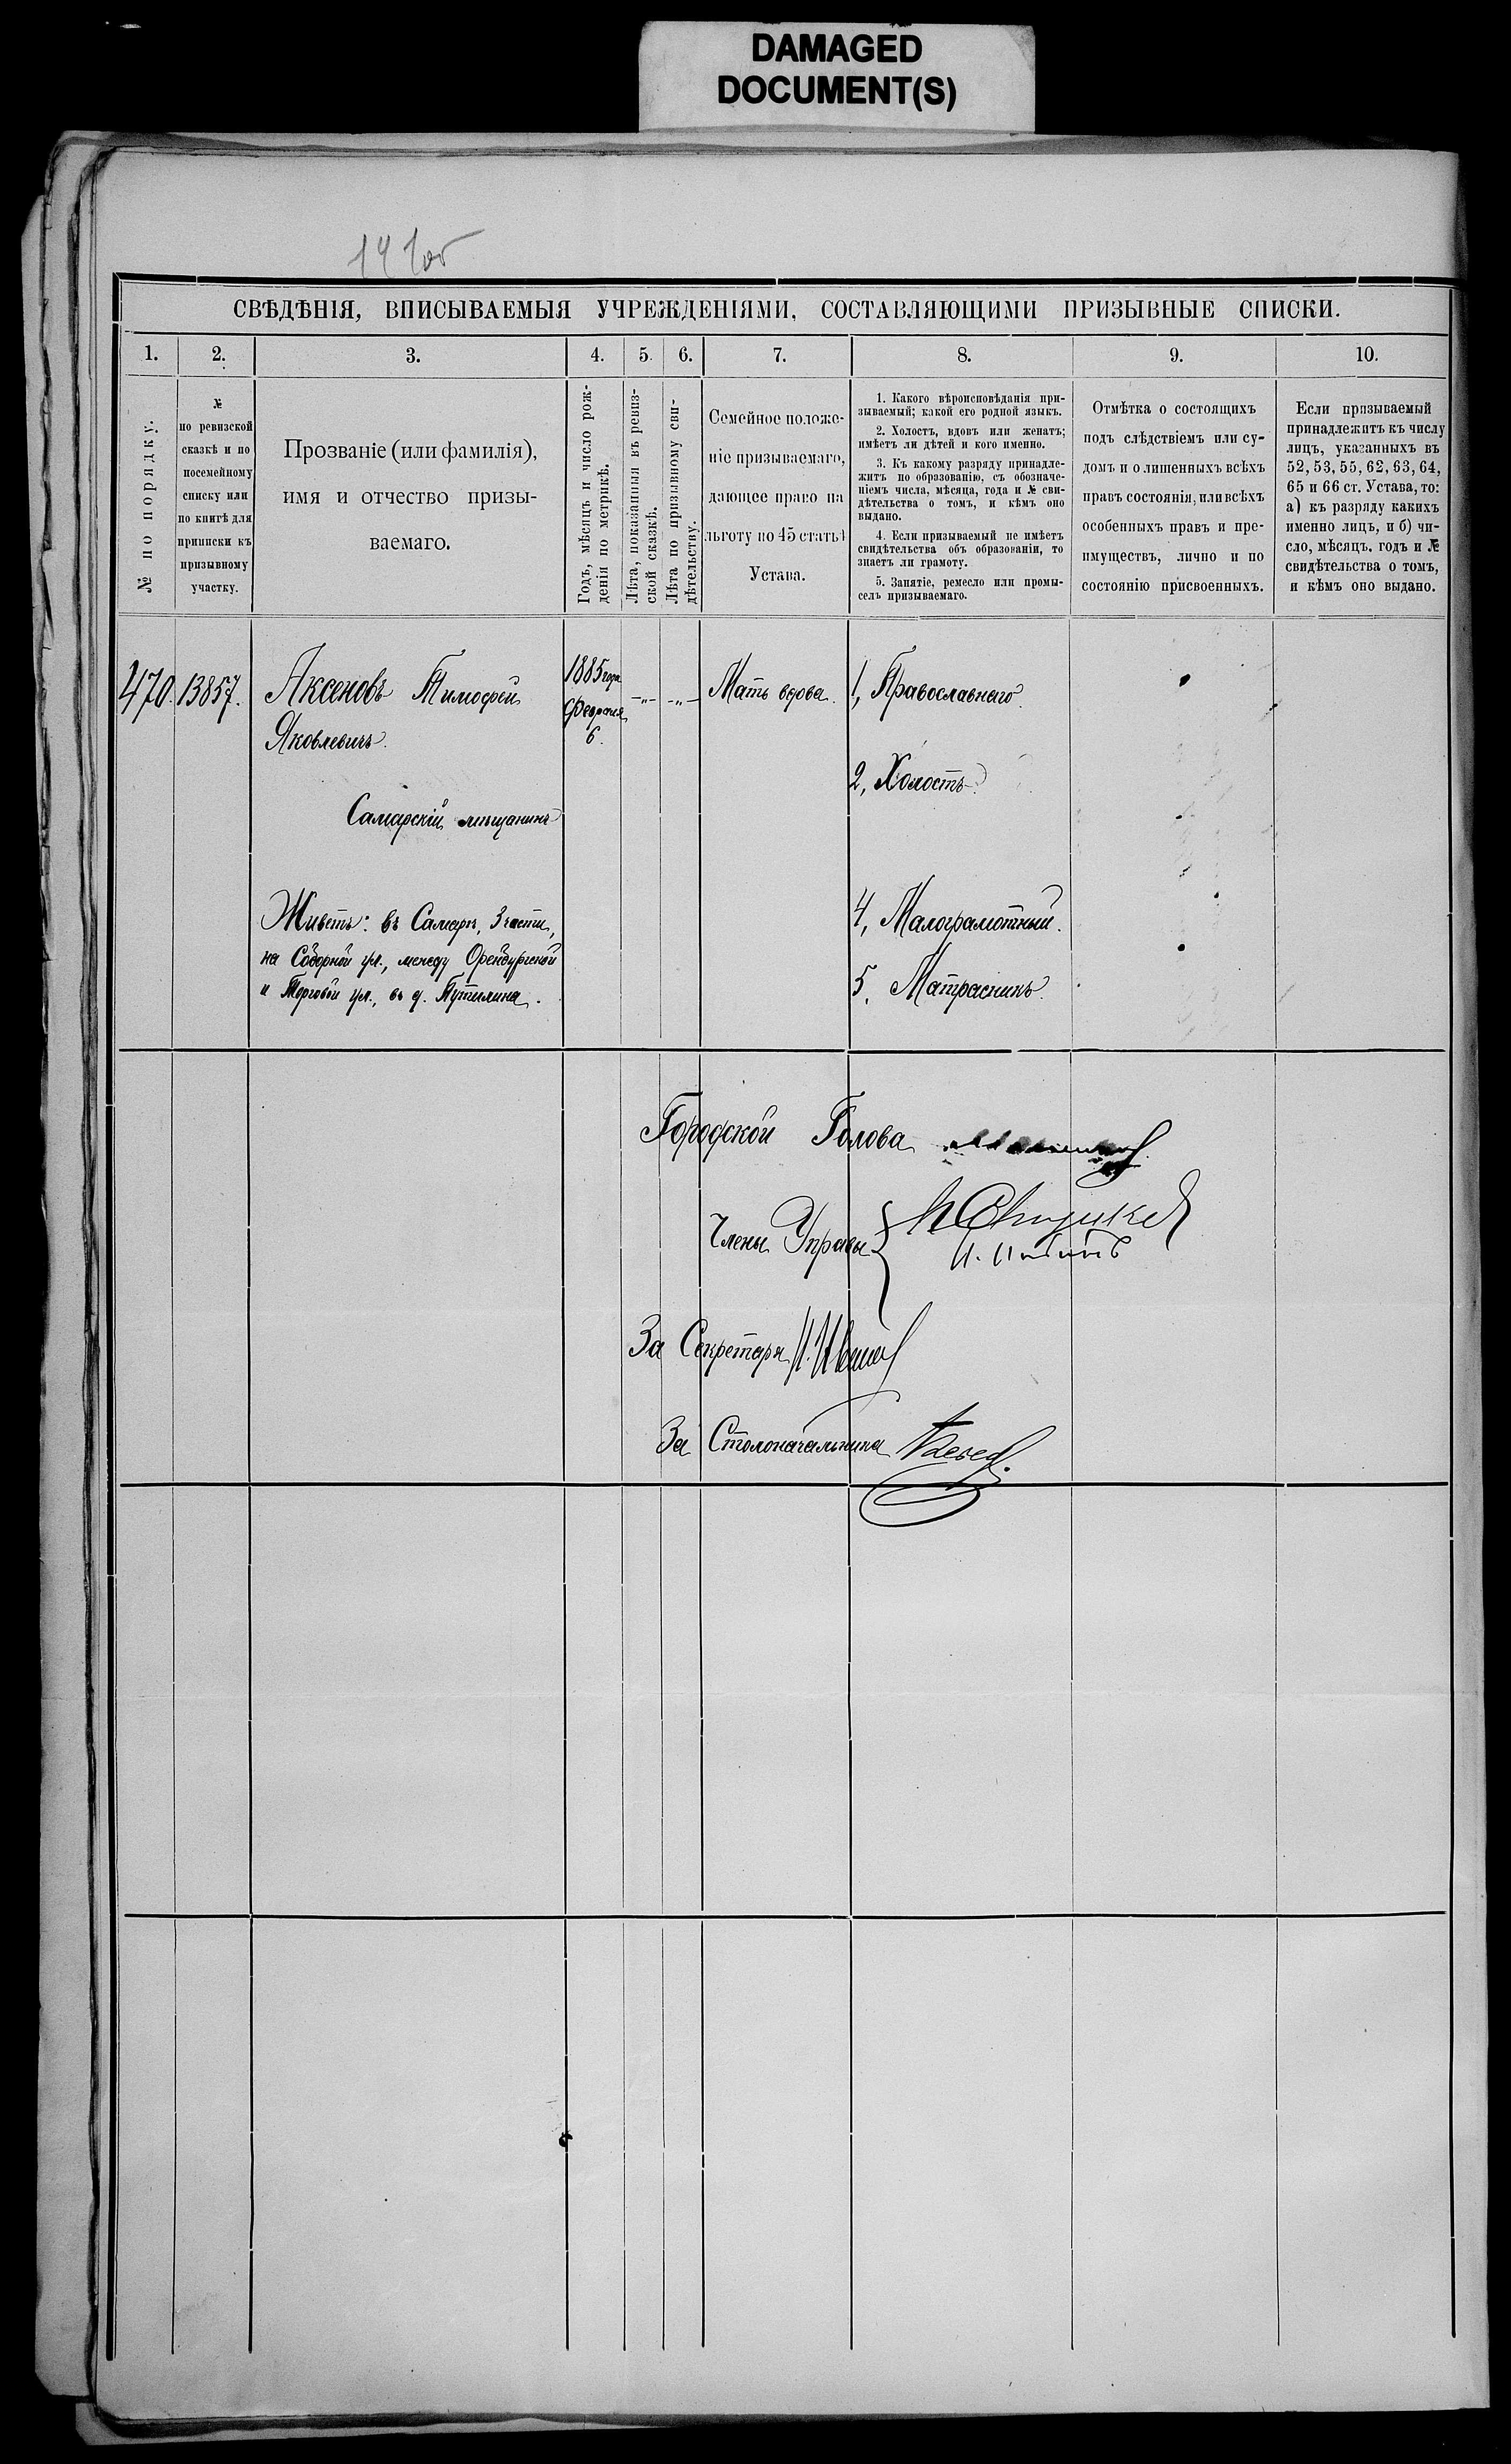 DAMAGED
DOCUMENT(S)
СВѢДѢНІЯ, ВПИСЫВАЕМЫЯ УЧРЕЖДЕНІЯМИ, СОСТАВЛЯЮЩИМИ ПРИЗЫВНЫЕ СПИСКИ.
1. 2. 3. 4. 5. 6. 7. 8. 9. 10.
№ по порядку.
№
по ревизской
сказкѣ и по
посемейному
списку или
по книгѣ для
приписки къ
призывному
участку.
Прозваніе (или фамилія),
имя и отчество призы-
ваемаго.
Годъ, мѣсяцъ и число рож-
денія по метрикѣ.
Лѣта, показанныя въ ревиз-
ской сказкѣ.
Лѣта по призывному сви-
дѣтельству.
Семейное положе-
ніе призываемаго,
дающее право на
льготу по 45 статьѣ
Устава.
1. Какого вѣроисповѣданія при-
зываемый; какой его родной языкъ.
2. Холостъ, вдовъ или женатъ;
имѣетъ ли дѣтей и кого именно.
3. Къ какому разряду принадле-
житъ по образованію, съ обозначе-
ніемъ числа, мѣсяца, года и № сви-
дѣтельства о томъ, и кѣмъ оно
выдано.
4. Если призываемый не имѣетъ
свидѣтельства объ образованіи, то
знаетъ ли грамоту.
5. Занятіе, ремесло или промы-
селъ призываемаго.
Отмѣтка о состоящихъ
подъ слѣдствіемъ или су-
домъ и о лишенныхъ всѣхъ
правъ состоянія, или всѣхъ
особенныхъ правъ и пре-
имуществъ, лично и по
состоянію присвоенныхъ.
Если призываемый
принадлежитъ къ числу
лицъ, указанныхъ въ
52, 53, 55, 62, 63, 64,
65 и 66 ст. Устава, то:
а) къ разряду какихъ
именно лицъ, и б) чи-
сло, мѣсяцъ, годъ и №
свидѣтельства о томъ,
и кѣмъ оно выдано.
470. 13857.
Аксеновъ Тимофей
Яковлевичъ.
Самарскій мѣщанинъ
Живетъ: въ Самарѣ, 3 части,
на Соборной ул., между Оренбургской
и Торговой ул., въ д. Путилина.
1885 года
Февраля
6.
-"- -"-
Мать вдова.
1, Православнаго
2, Холостъ.
4, Малограмотный.
5, Матрасникъ.
Городской Голова
Члены Управы
За Секретаря И. Иванов
За Столоначальника